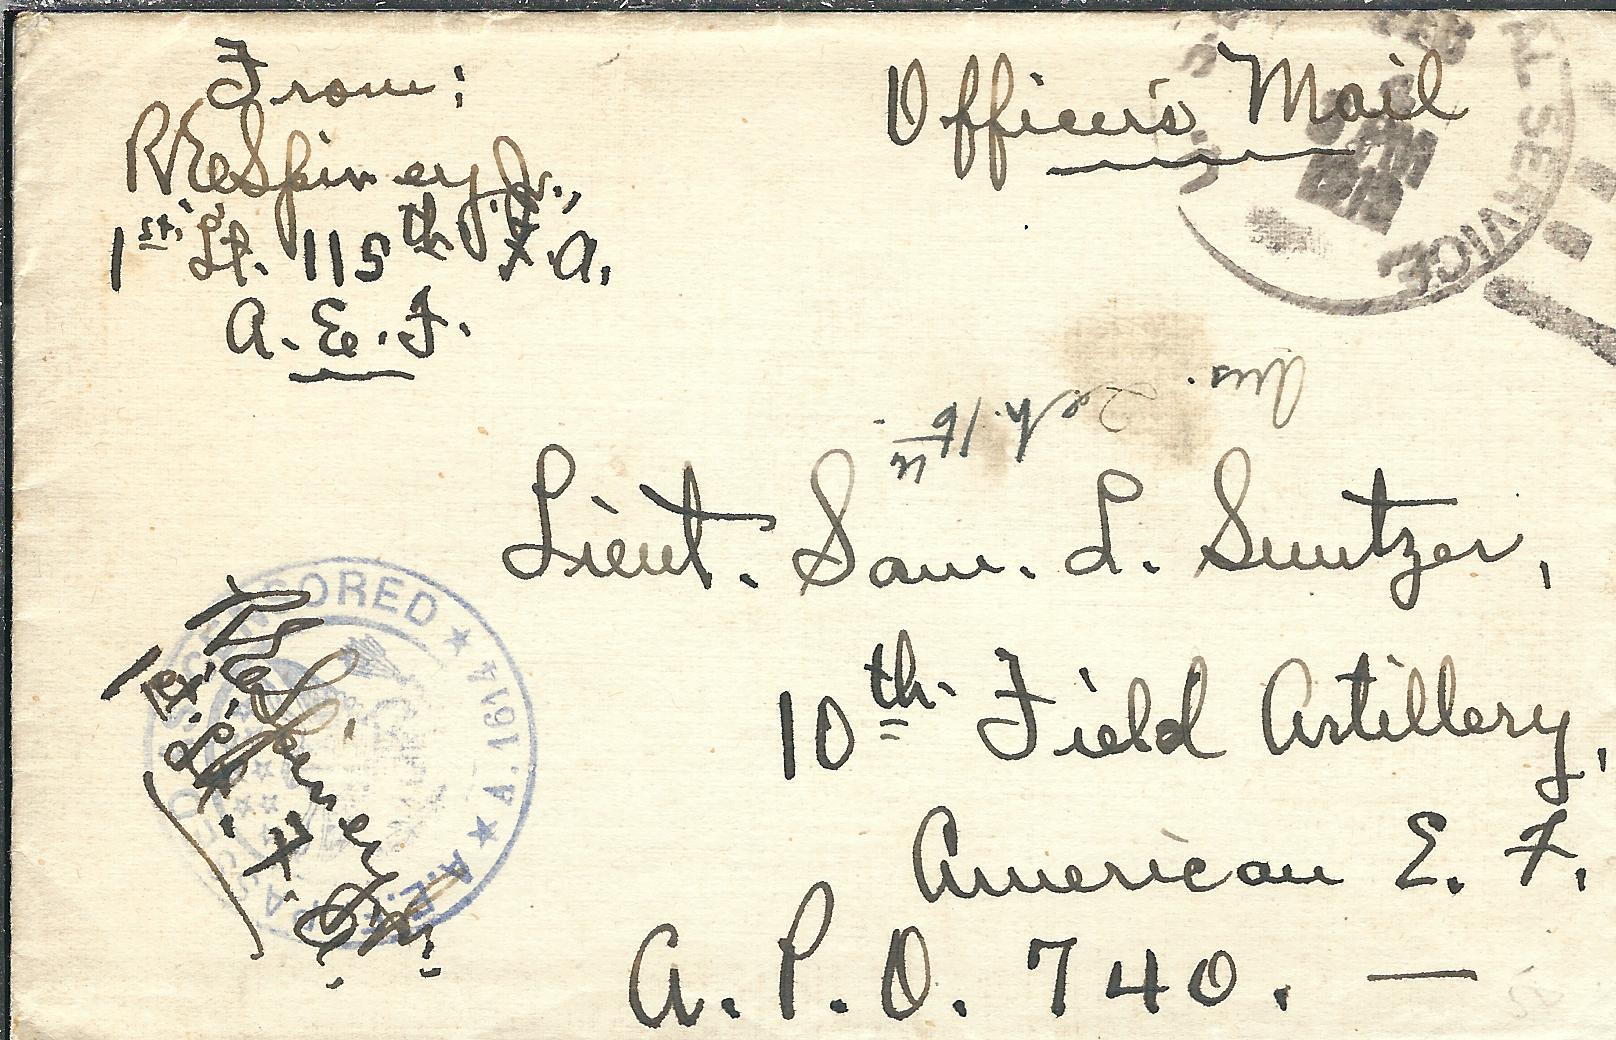 From:
R E Spivey, Jr.,
1st. Lt. 115th F.A.
A. E. F.
Officers Mail
SERVICE
Ans. Dec. 16th
Lieut. Sam. L. Suntzer,
10th. Field Artillery,
American E. F.
A. P. O. 740. —
PASSED AS CENSORED ★ A.1914 ★ A.E.F.
R E Spivey Jr.
1st. Lt. F. A.